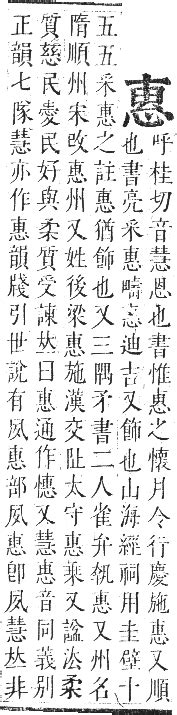 惠
呼桂切音慧恩也書惟惠之懷月令行慶施惠又順
也書亮采惠疇惠迪吉又飾也山海經祠用圭璧十
五五采惠之註惠猶飾也又三隅矛書二人雀弁執惠又州名
隋順州宋改惠州又姓後梁惠施漢交阯太守惠乗又諡法柔
質慈民愛民好與柔質受諫𠀤曰惠通作憓又慧惠音同義別
正韻七隊慧亦作惠韻牋引世說有夙惠部夙惠卽夙慧𠀤非